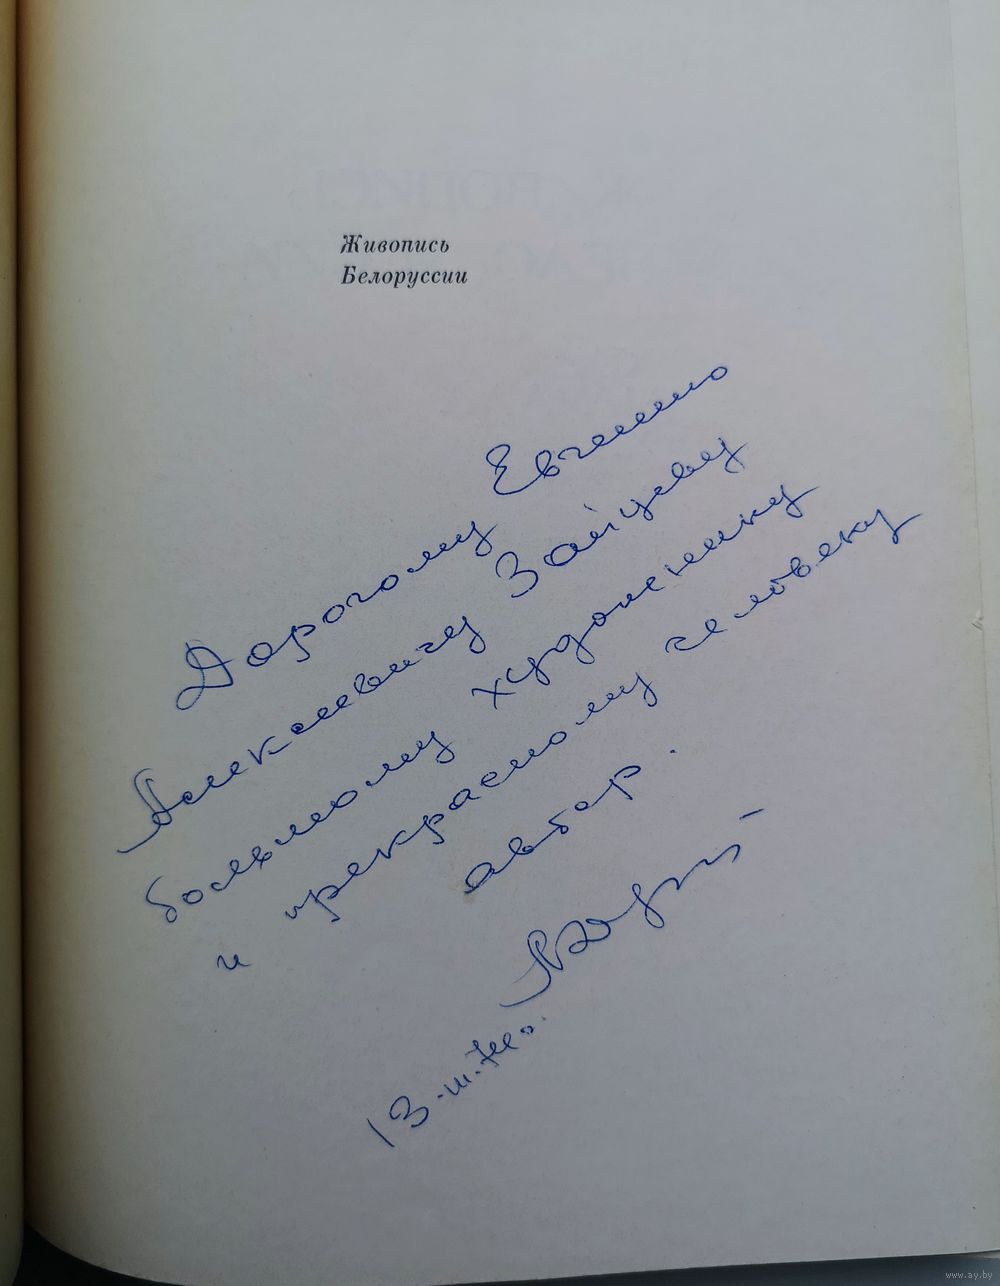 Живопись
Белоруссии
Дорогому Евгению
Алексеевичу Зайцеву
большому художнику
и прекрасному человеку
автор.
13-III.
www.ay.by